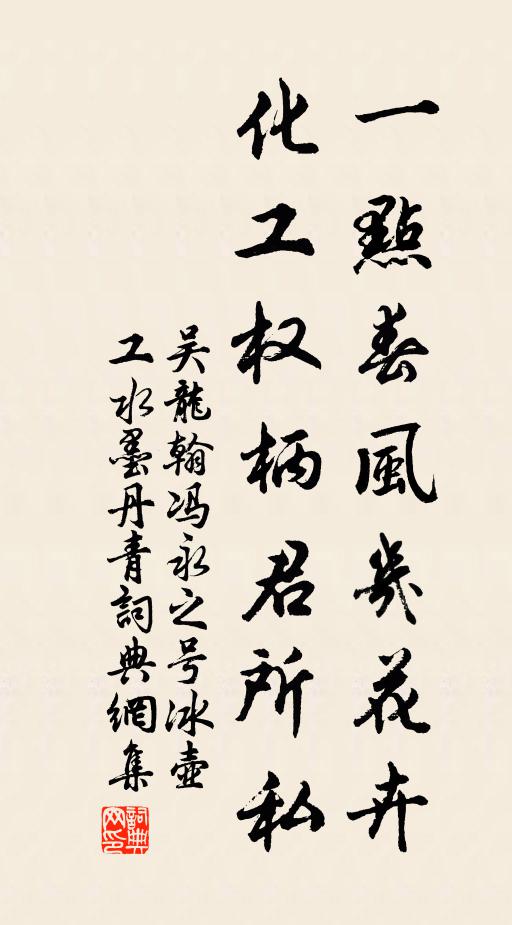 一點春風幾花卉
化工权柄君所私
吴龍翰冯永之号冰壶
工水墨丹青詞典網集
詞典网印